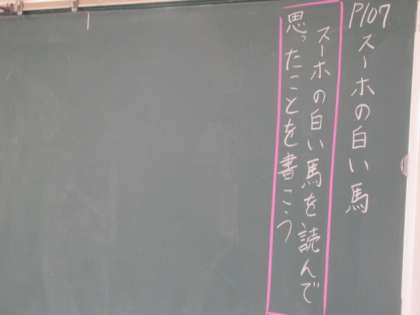 P107
スーホの白い馬
スーホの白い馬を読んで
思ったことを書こう